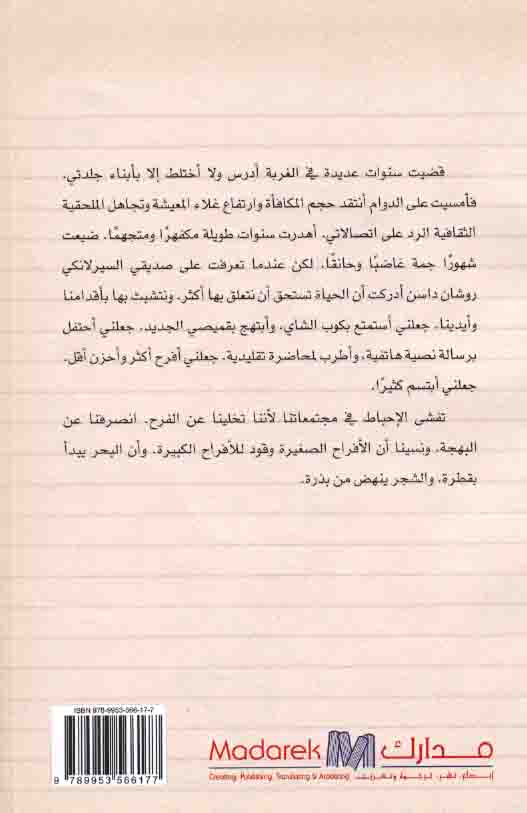 قضيت سنوات عديدة في الغربة أدرس ولا أختلط إلا بأبناء جلدتي.
فأمسيت على الدوام أنتقد حجم المكافأة وارتفاع غلاء المعيشة وتجاهل الملحقية
الثقافية الرد على اتصالاتي. أهدرت سنوات طويلة مكفهرًا ومتجهمًا. ضيعت
شهورًا جمة غاضبًا وحانقًا. لكن عندما تعرفت على صديقي السيرلانكي
روشان داسن أدركت أن الحياة تستحق أن نتعلق بها أكثر. ونتشبث بها بأقدامنا
وأيدينا. جعلني أستمتع بكوب الشاي. وأبتهج بقميصي الجديد. جعلني أحتفل
برسالة نصية هاتفية، وأطرب لمحاضرة تقليدية. جعلني أفرح أكثر وأحزن أقل.
جعلني أبتسم كثيرًا.
تفشى الإحباط في مجتمعاتنا لأننا تخلينا عن الفرح. انصرفنا عن
البهجة. ونسينا أن الأفراح الصغيرة وقود للأفراح الكبيرة. وأن البحر يبدأ
بقطرة. والشجر ينهض من بذرة.
ISBN 978-9953-566-17-7
9 789953 566177
Madarek مدارك
Creating, Publishing, Translating & Arabizing إبداع، نشر، ترجمة وتعريب